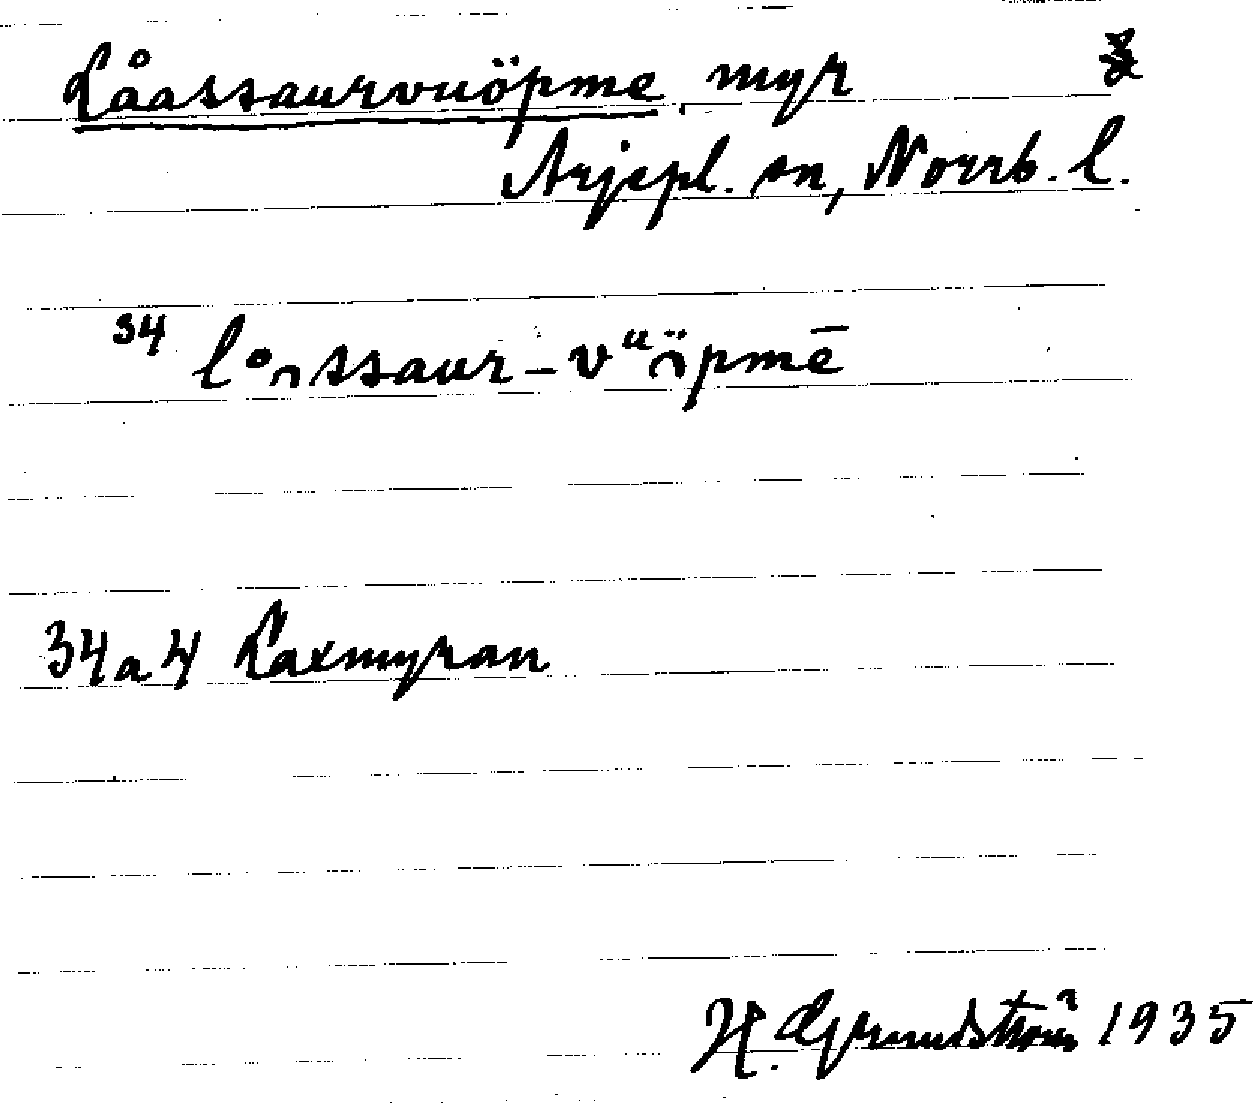 Låassaurvuöpme, myr
Arjepl. sn, Norrb. l.
34 l°ꭥssaur-vᵘꭥ̈pmē
34a4 Laxmyran
H. Grundström 1935